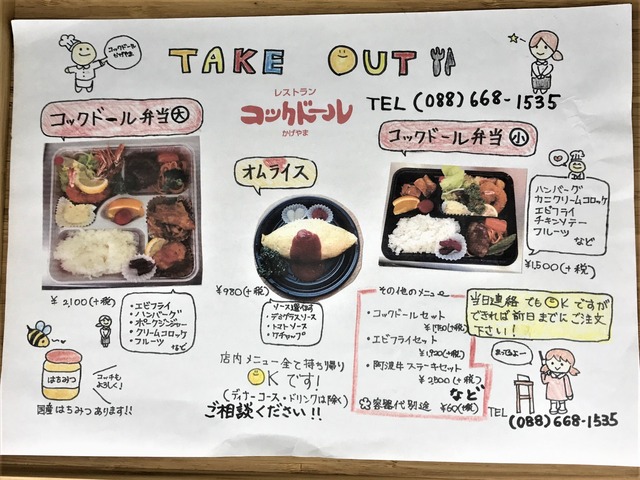 コックドール
かげやま
TAKE OUT
レストラン
コックドール
かげやま
TEL (088) 668-1535
コックドール弁当 大
¥2,100(+税)
・エビフライ
・ハンバーグ
・ポークジンジャー
・クリームコロッケ
・フルーツ
など
オムライス
¥980(+税)
ソース選べます
・デミグラスソース
・トマトソース
・ケチャップ
コックドール弁当 小
ハンバーグ
カニクリームコロッケ
エビフライ
チキンソテー
フルーツ
など
¥1,500(+税)
はちみつ
コッチも
よろしく!
国産はちみつあります!!
店内メニュー全て持ち帰り
OKです!
(ディナーコース・ドリンクは除く)
ご相談ください!!
その他のメニュー
・コックドールセット
・エビフライセット
¥1,920(+税)
・阿波牛ステーキセット
¥2,500(+税)
など
容器代別途 ¥60(+税)
当日連絡でもOKですが
できれば前日までにご注文
下さい!
まってるよー
TEL
(088) 668-1535